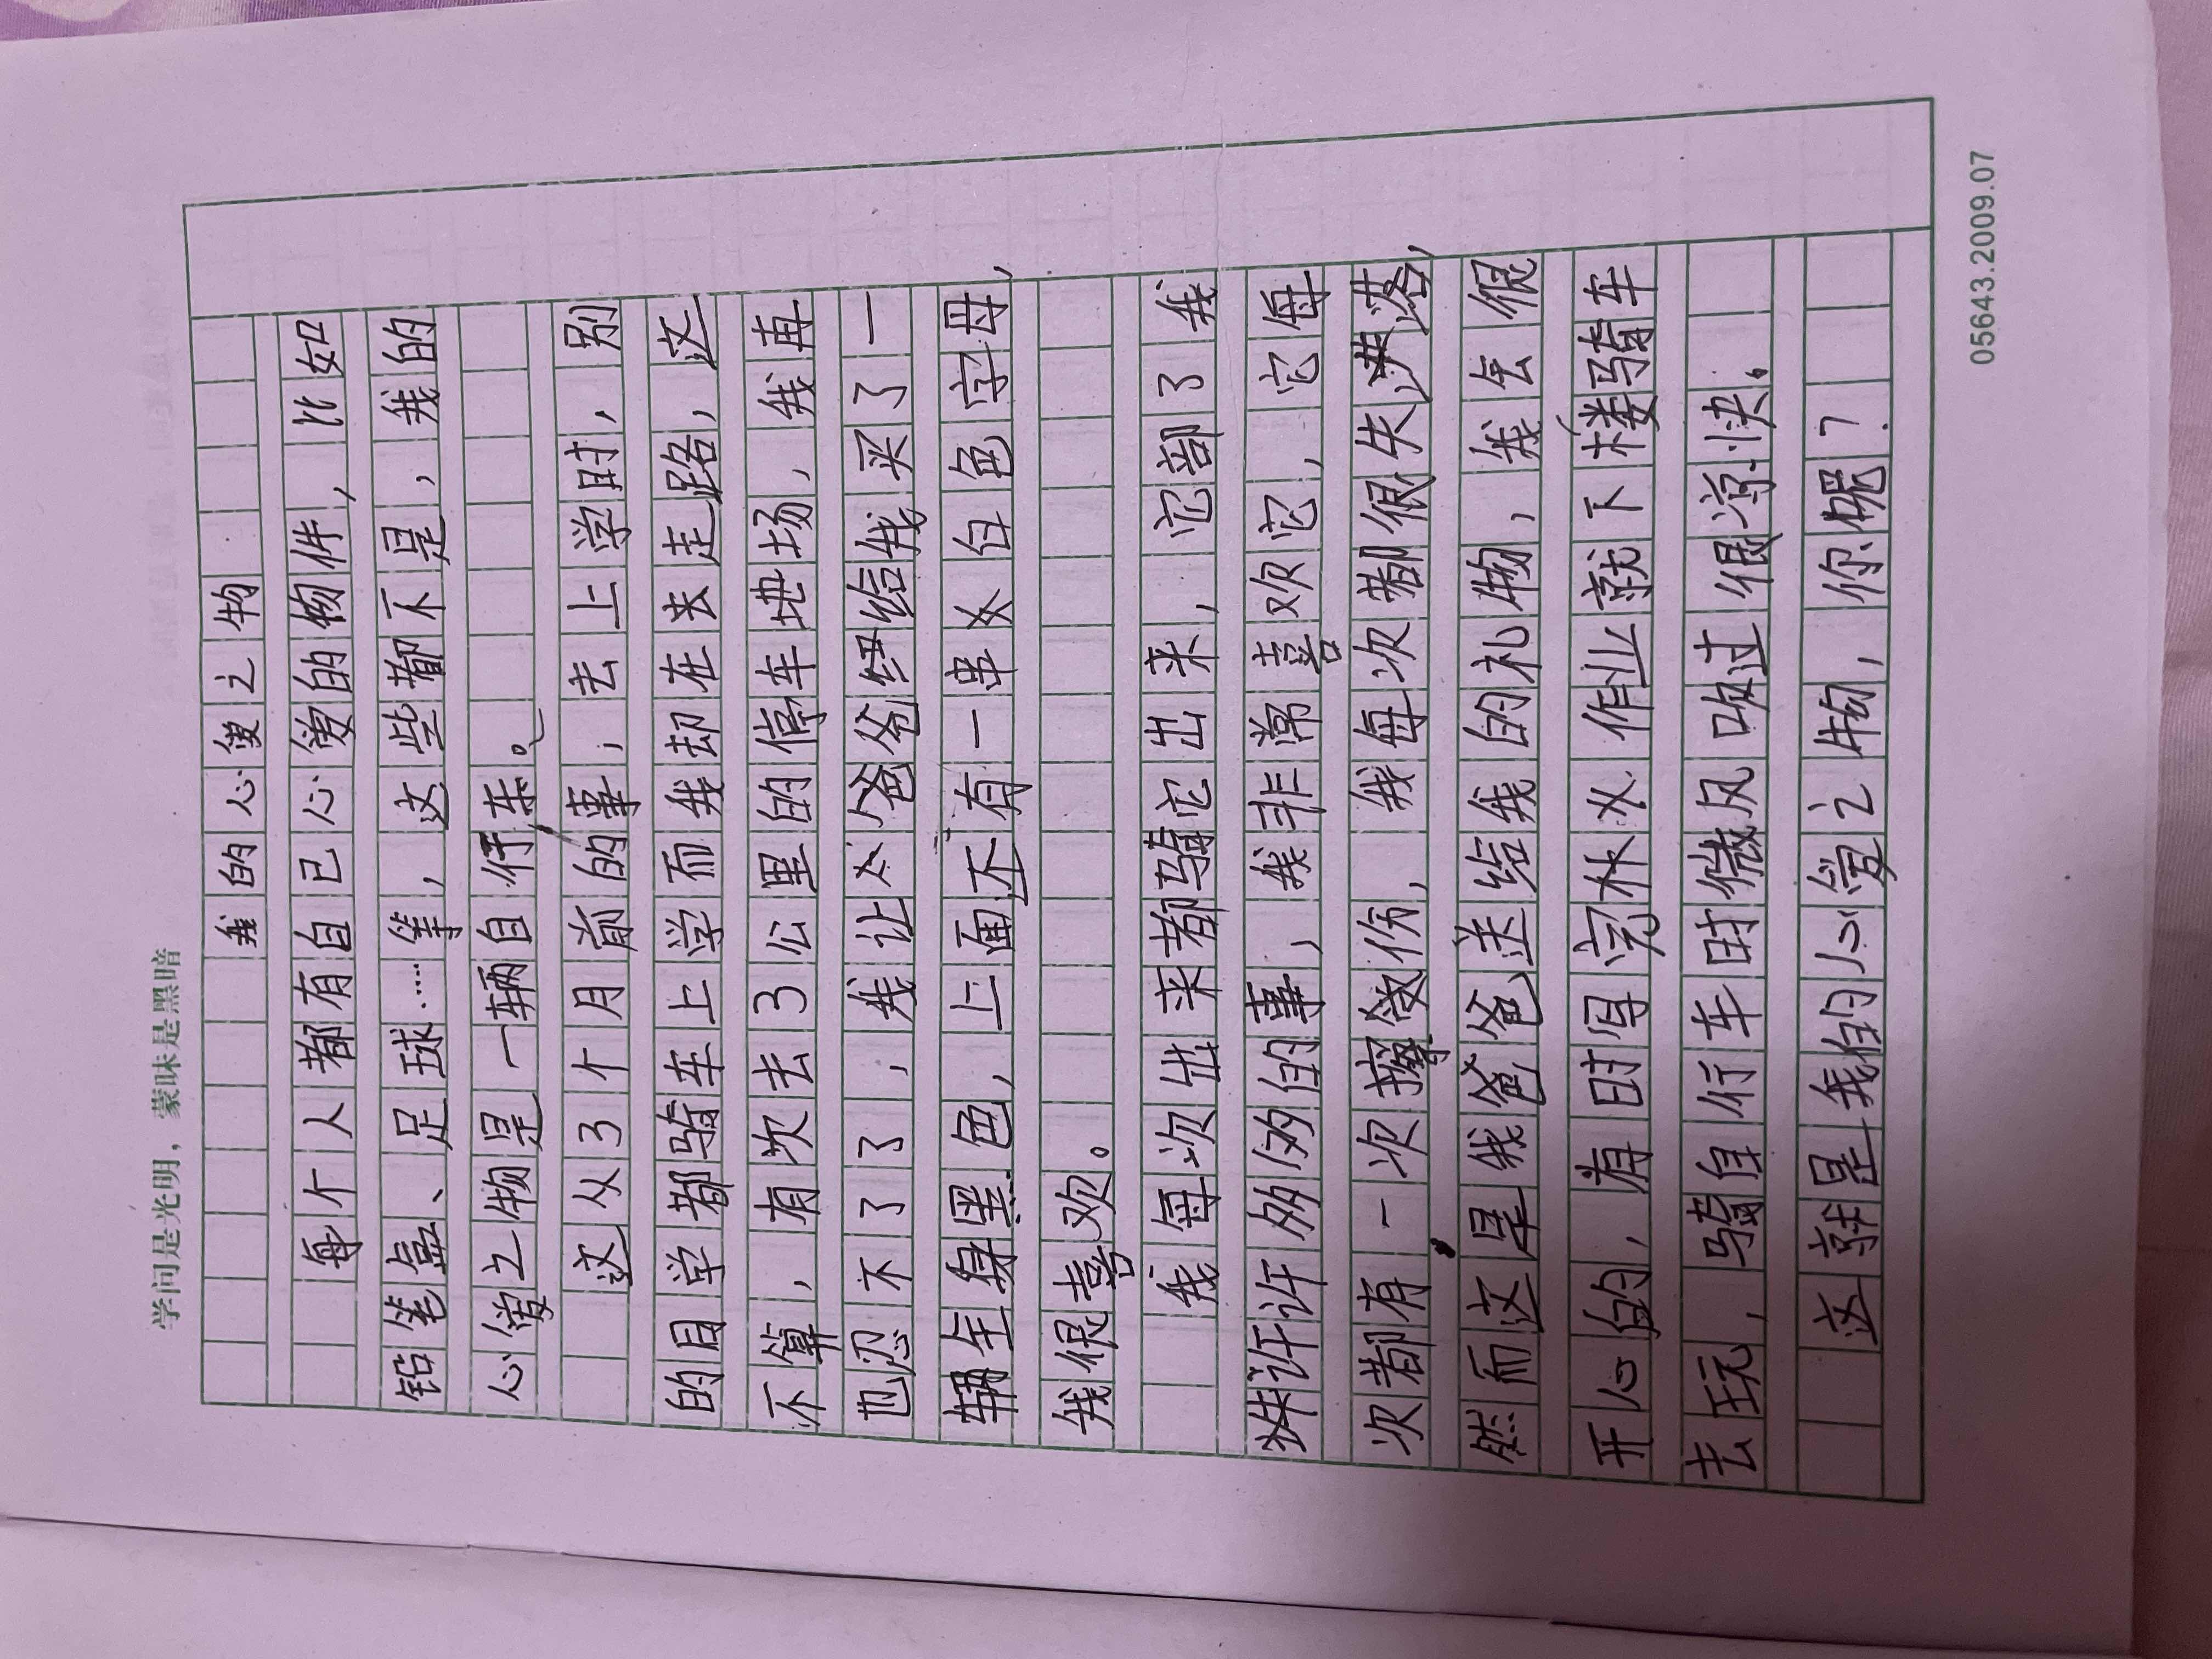 学问是光明，蒙昧是黑暗
我的心爱之物
每个人都有自己心爱的物件，比如
铅笔盒、足球……等，这些都不是，我的
心爱之物是一辆自行车。
这从3个月前的事，去上学时，别
的同学都骑车上学而我却在去走路，这
不算，有次去3公里的停车地场，我再
也忍不了了，我让爸爸给我买了一
辆全身黑色，上面有一串白色字母，
我很喜欢。
我每次出来都骑它出来，它部了我
许许多多的事，我非常喜欢它，它每
次都有一次擦受伤，我每次都很失落，
然而这是我爸爸送给我的礼物，我会很
开心的，有时写完作业就下楼骑车
去玩，骑自行车时微风吹过很凉快。
这就是我的心爱之物，你呢？
05643.2009.07